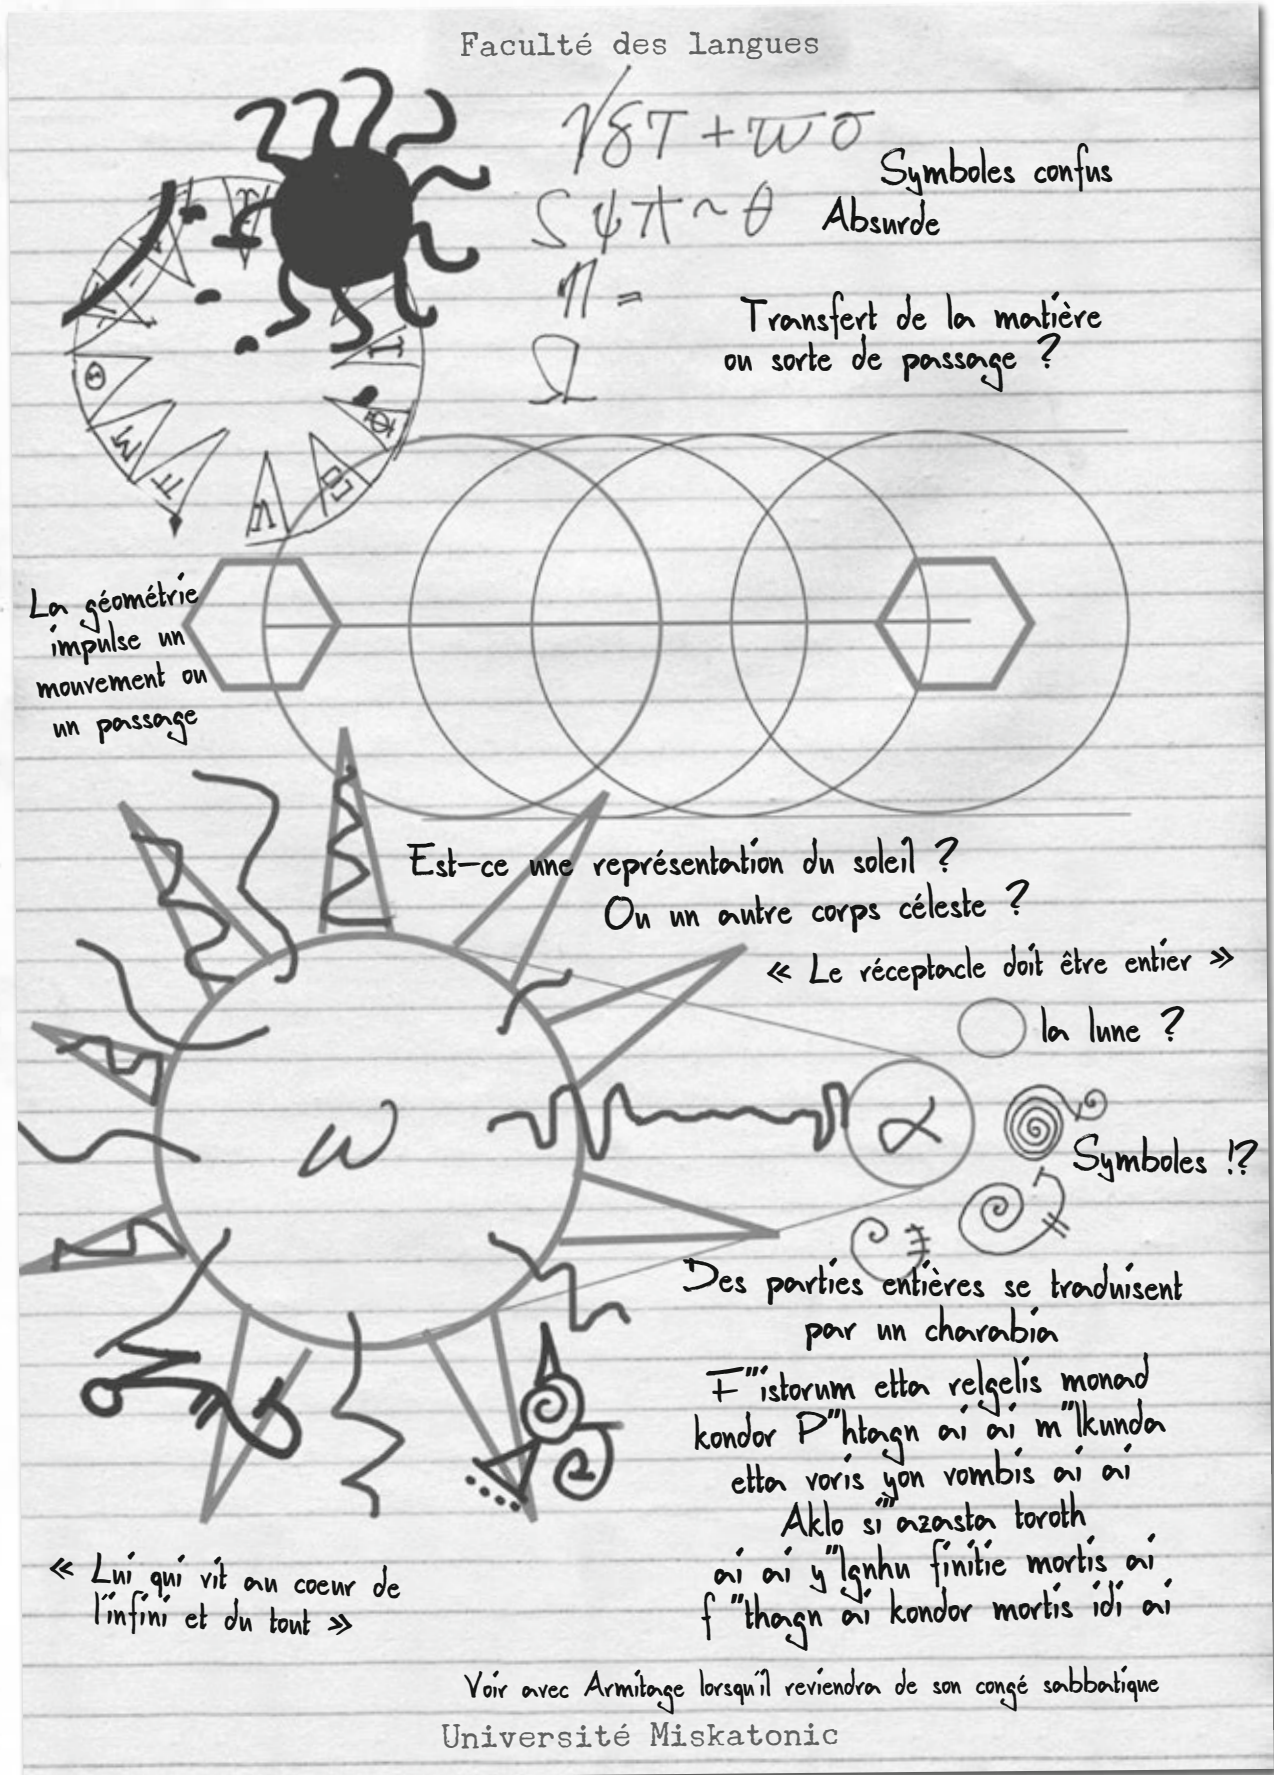 Faculté des langues
γδτ + ϖσ
Symboles confus
Sψπ ~ θ
Absurde
η =
Ω
Transfert de la matière
ou sorte de passage ?
La géométrie
impulse un
mouvement ou
un passage
Est-ce une représentation du soleil ?
Ou un autre corps céleste ?
« Le réceptacle doit être entier »
la lune ?
ω
α
Symboles !?
Des parties entières se traduisent
par un charabia
F"istorum etta relgelis monad
kondor P"htagn ai ai m"lkunda
etta voris yon vombis ai ai
Aklo si"azasta toroth
ai ai y"lgnhu finitie mortis ai
f "thagn ai kondor mortis idi ai
« Lui qui vit au coeur de
l'infini et du tout »
Voir avec Armitage lorsqu'il reviendra de son congé sabbatique
Université Miskatonic